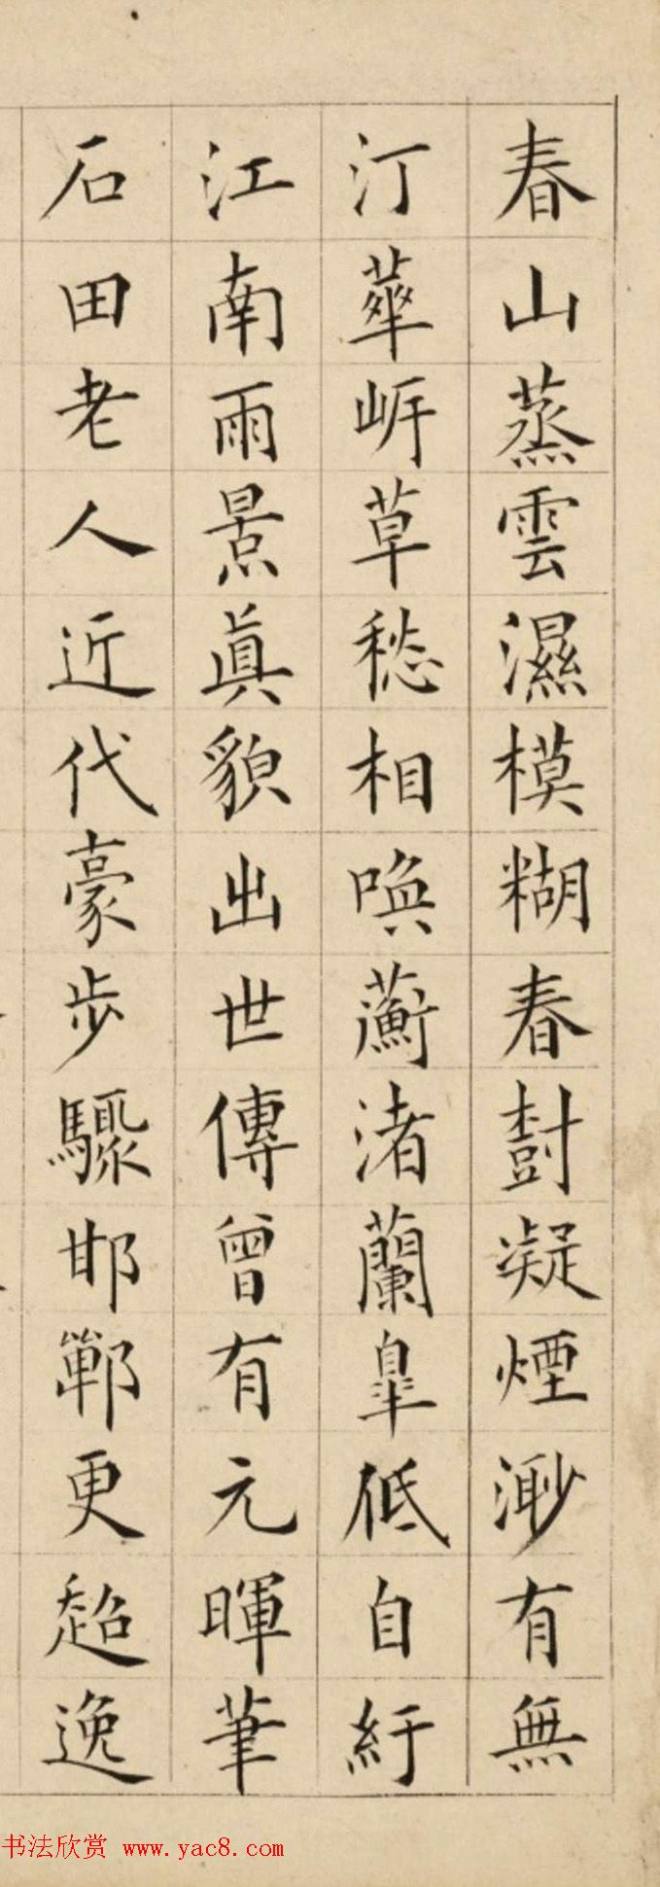 春山蒸雲濕模糊春尌凝煙渺有無
汀蕐㟁草愁相喚蘅渚蘭臯低自紆
江南雨景真貌出世傳曾有元暉筆
石田老人近代豪步驟邯鄲更超逸
书法欣赏 www.yac8.com